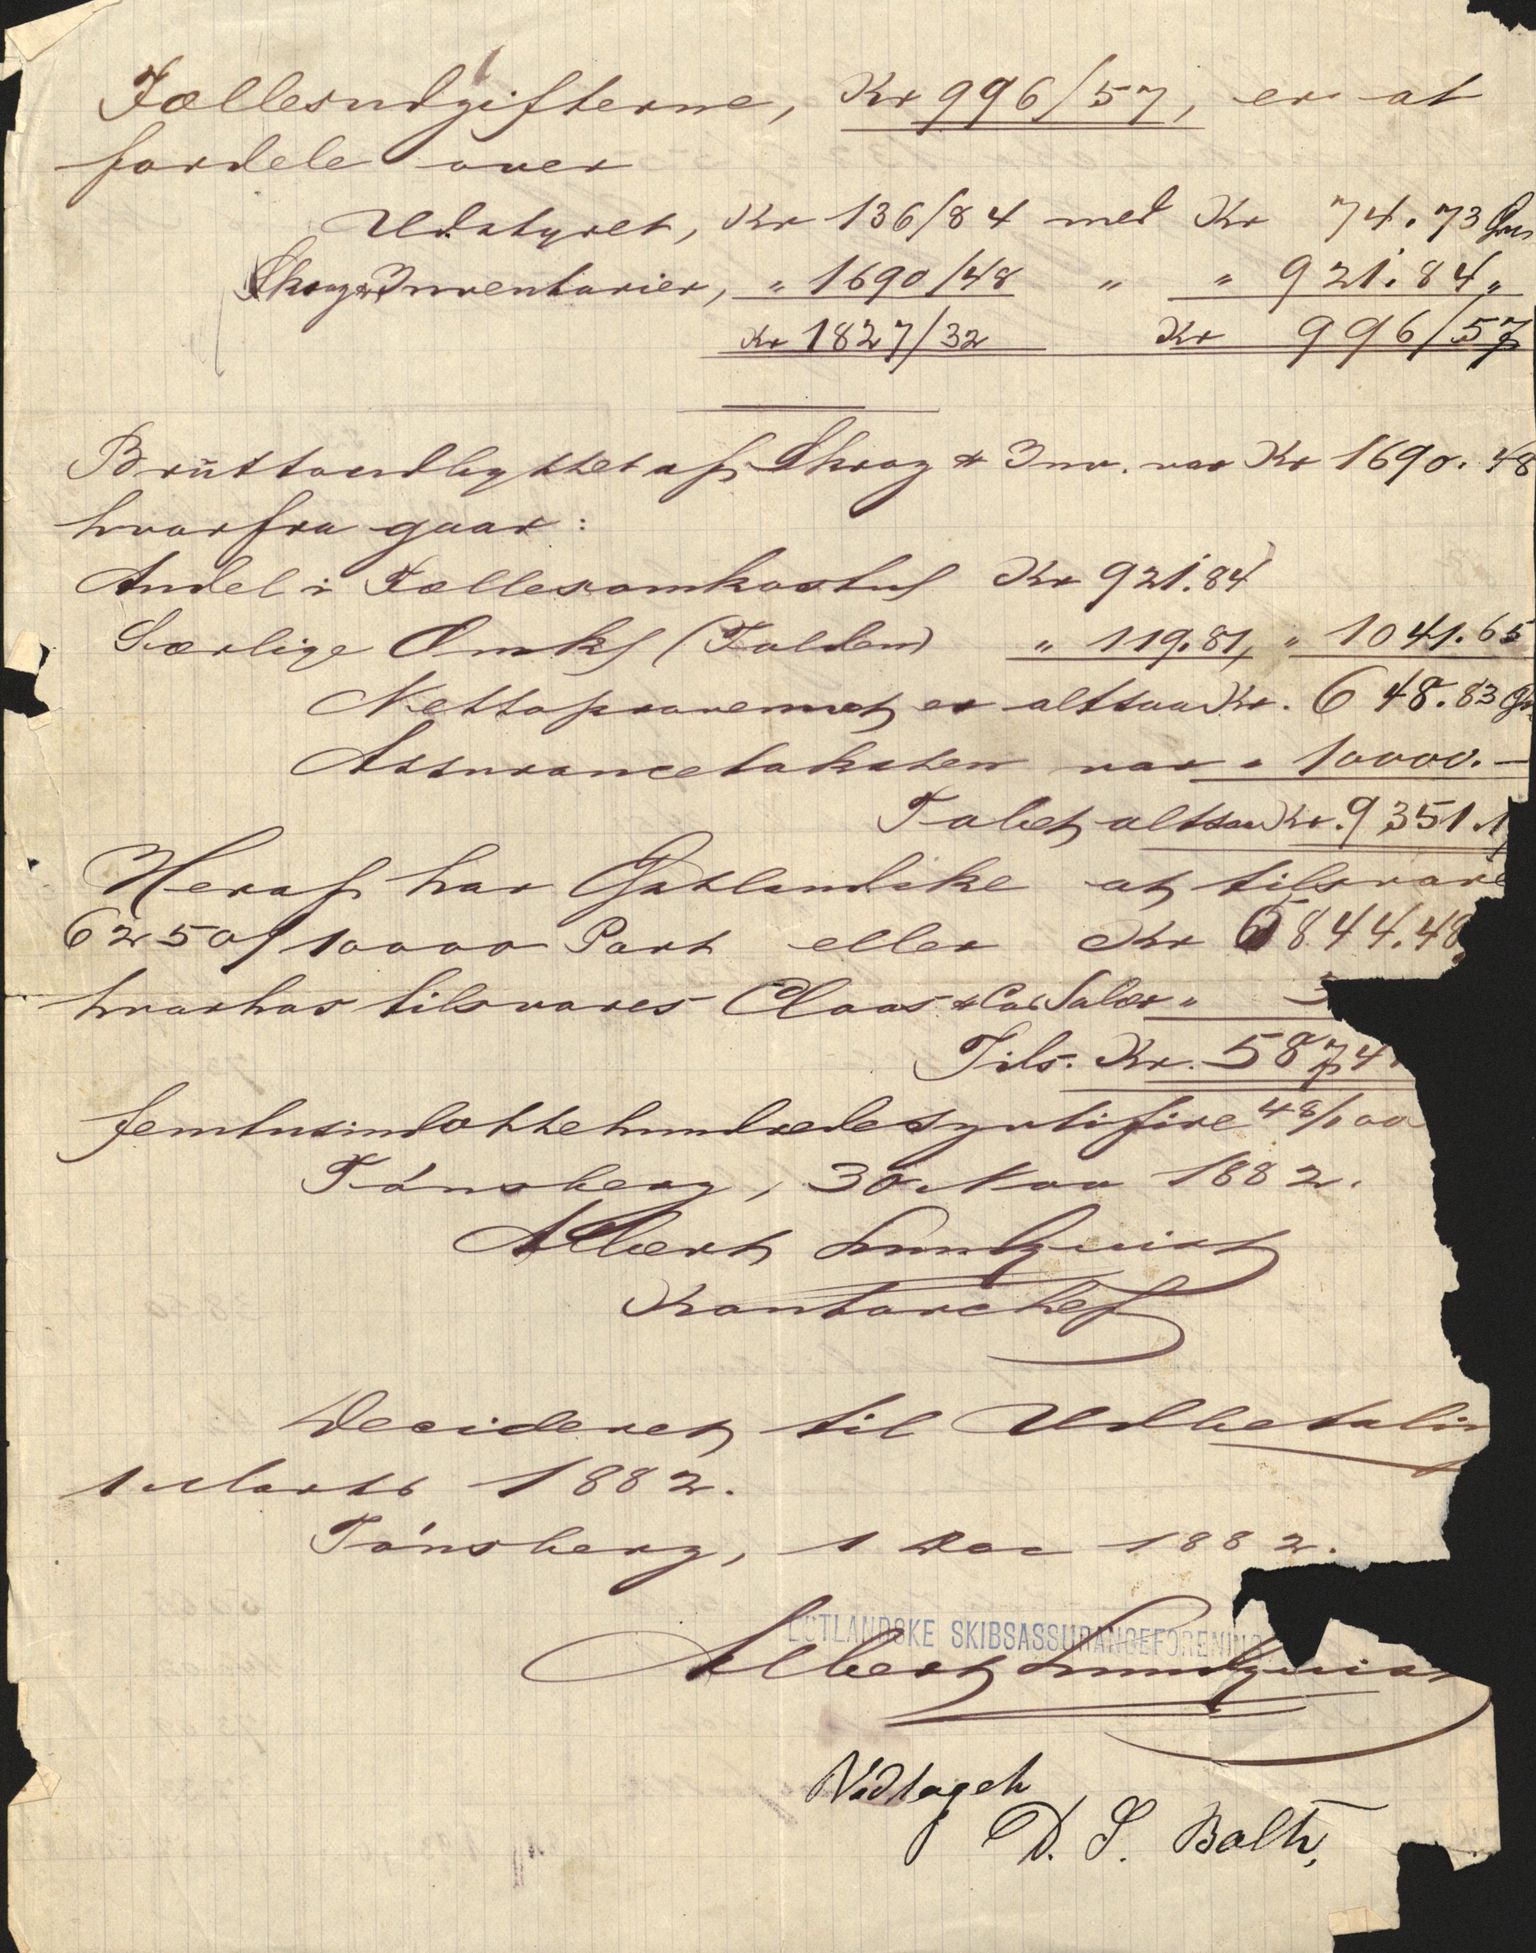 Fællesudgifterne, Kr 996/57, er at
fordele over
Udstyret, Kr 136/84 med Kr 74.73
Skrog & Inventarier, " 1690/48 " " 921.84 "
Kr 1827/32 Kr 996/57
Bruttoudbyttet af Skrog & Inv. var Kr 1690.48
hvorfra gaar:
Andel i Fællesomkostn Kr 921.84
Særlige Omk (Tolden) " 119.81, " 1041.65
Nettoprovenuet er altsaa Kr. 648.83
Assurancetaksten var " 10000.—
Tabet altsaa Kr. 9351.1
Heraf har Østlandske at tilsvare
6250/10000 Part eller Kr 5844.48
hvorhos tilsvares Claas & Co's Salær " 3
Tils. Kr. 5874
femtusindottehundredesyttifire 48/100
Tønsberg, 30 Nov 1882.
Albert Lundquist
Kontorchef
Decideret til Udbetalin
1 Marts 1882.
Tønsberg, 1 Dec 1882.
ØSTLANDSKE SKIBSASSURANCEFORENING
Albert Lundquist
Vedtaget
D. S. Balth,